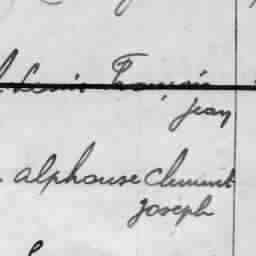 Louis François
Jean
alphouse Clement
Joseph